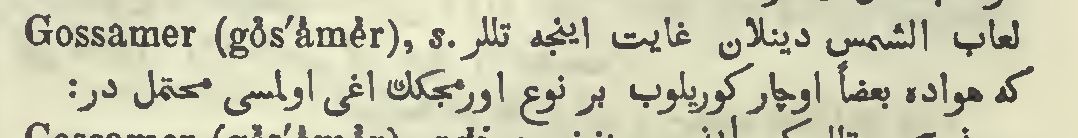 Gossamer (gŏs′ămĕr), s. لعاب الشمس دينلان غايت اينجه تللر
كه هواده بعضاً اوچار كوريلوب بر نوع اورمجكك اغى اولمسى محتمل در: